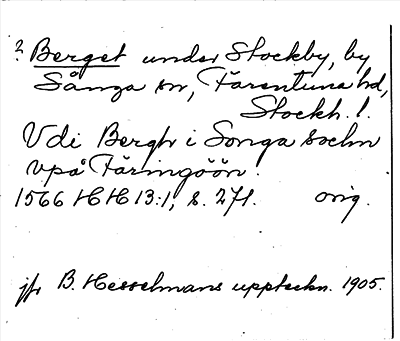 ? Berget under Stockby, by
Sånga sn, Färentuna hd,
Stockh. l.
V di Bergh i Songa sochn
vpå Färingöön.
1566 HH 13:1, s. 271. orig.
jfr B. Hesselmans uppteckn. 1905.